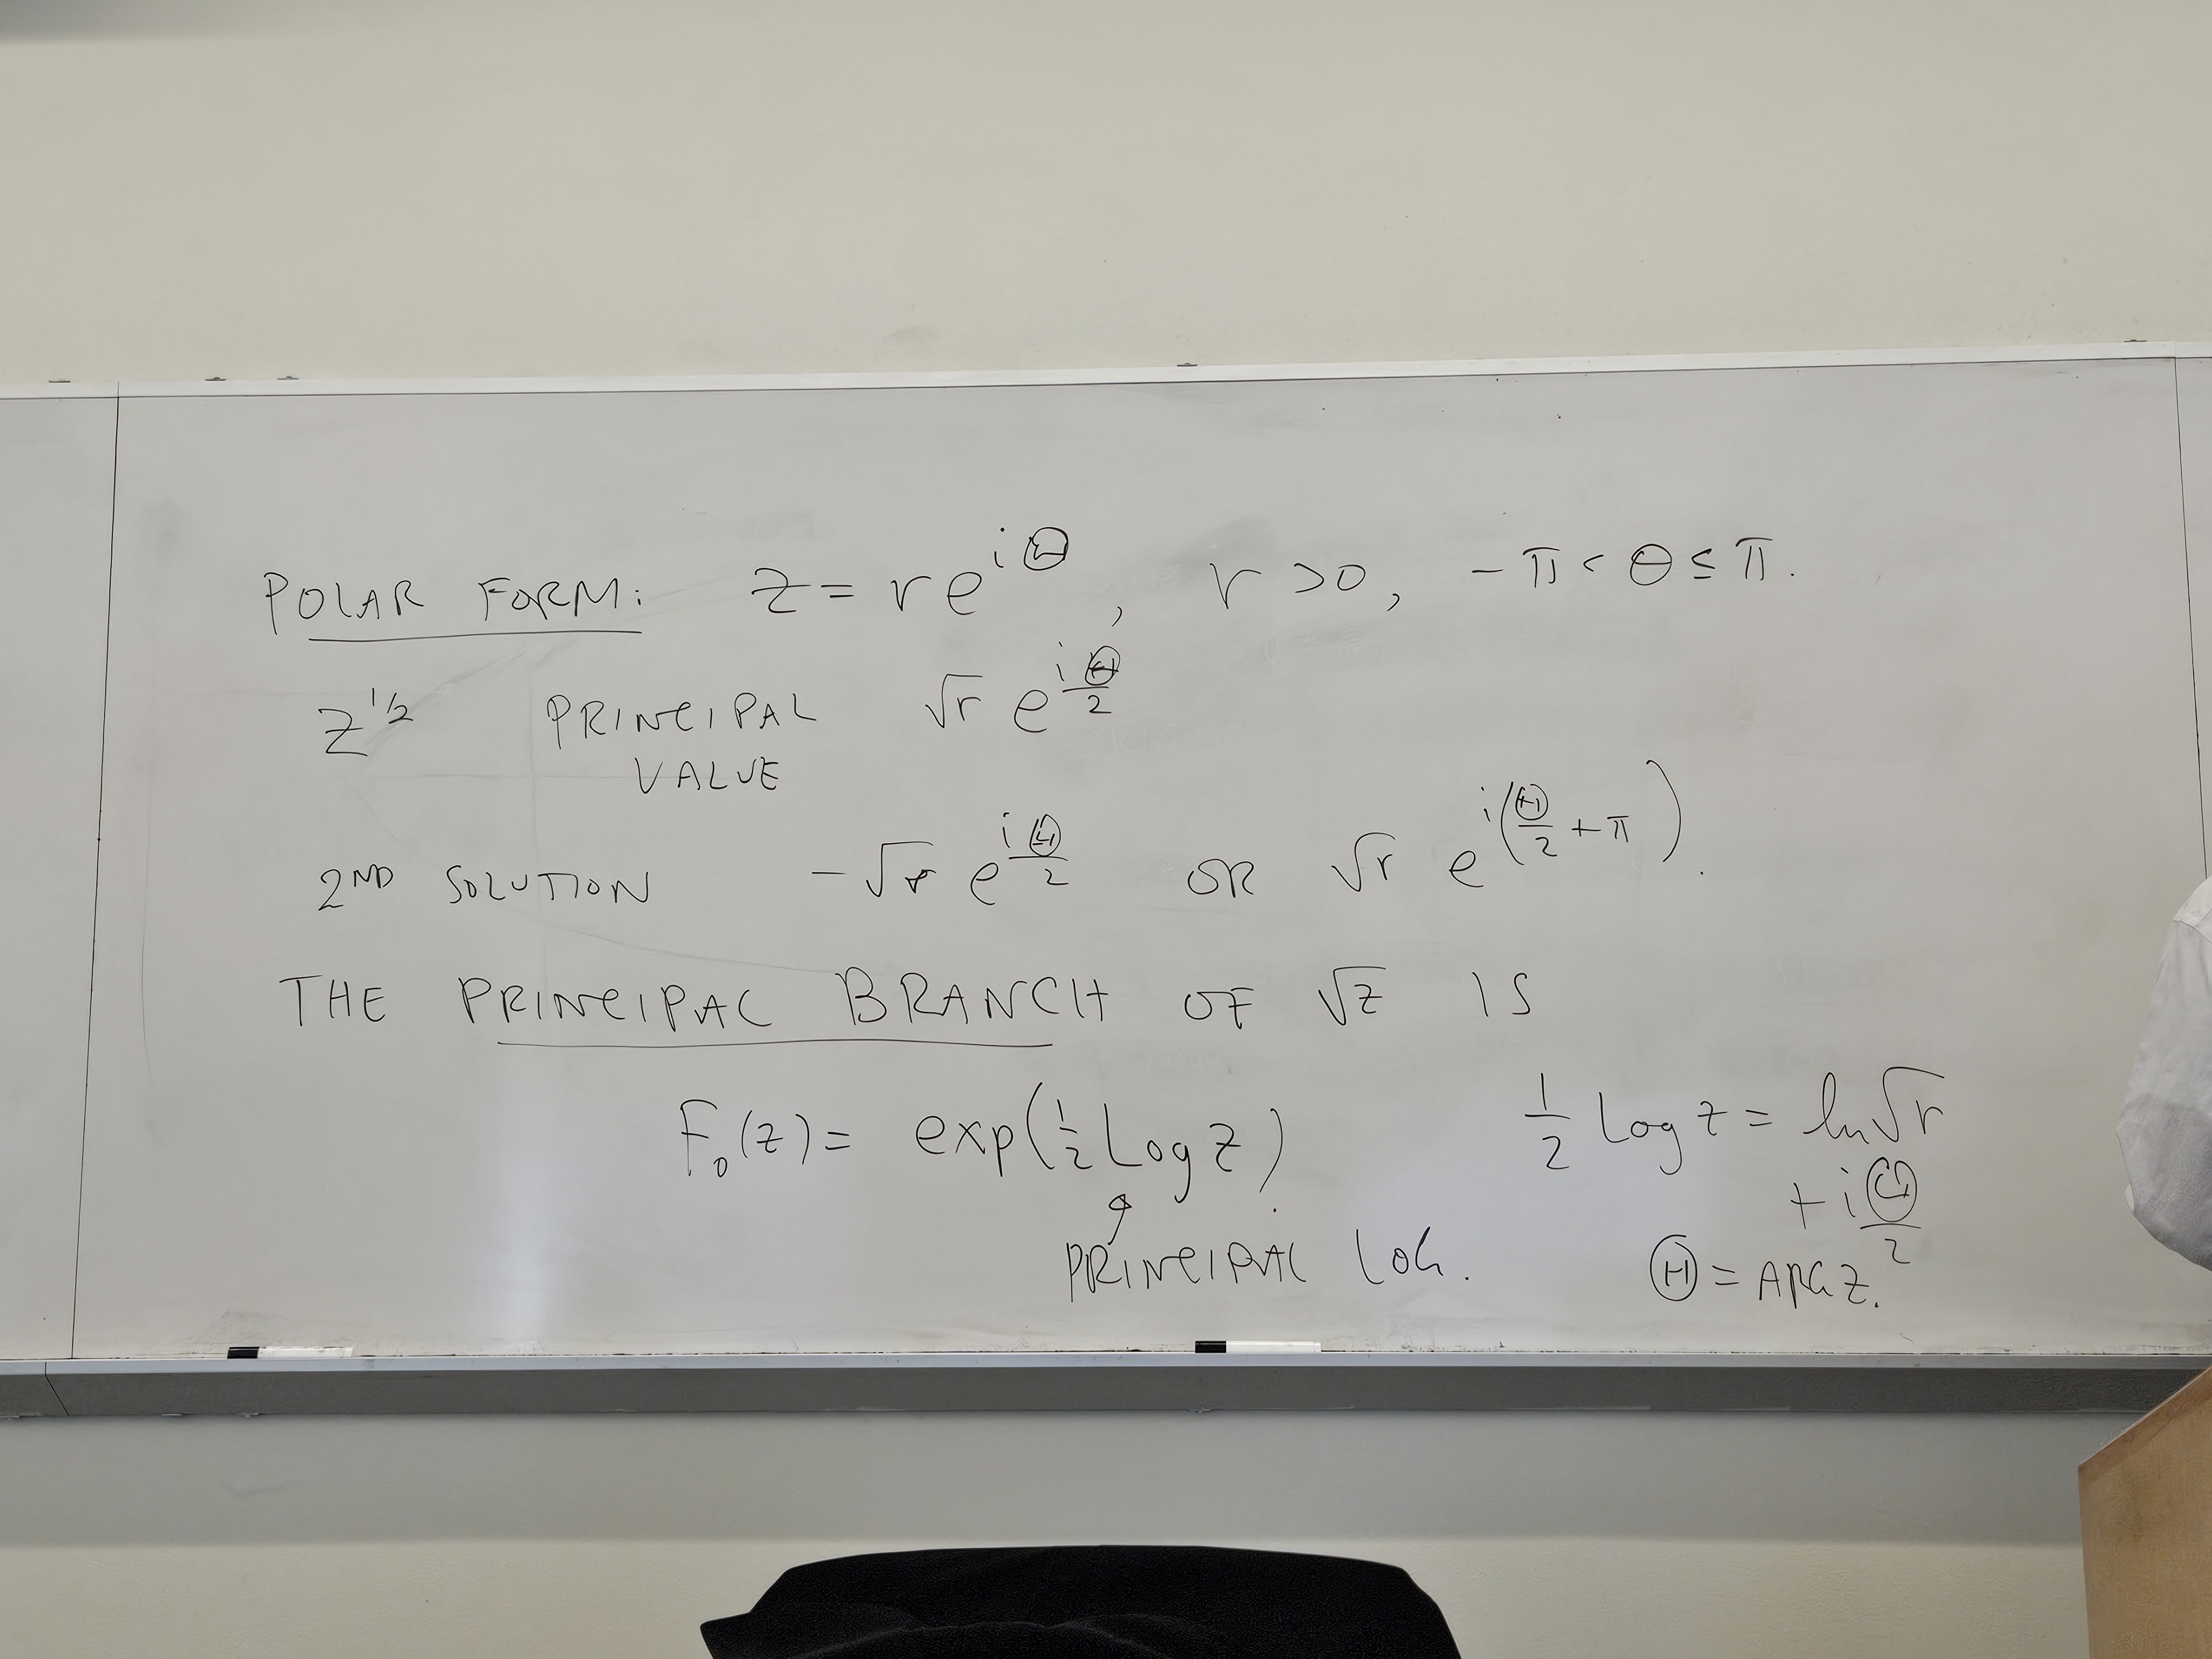 POLAR FORM: z = re^{iΘ}, r > 0, -π < Θ ≤ π.
z^{1/2} PRINCIPAL √r e^{iΘ/2}
VALUE
2ND SOLUTION -√r e^{iΘ/2} OR √r e^{i(Θ/2 + π)}.
THE PRINCIPAL BRANCH OF √z IS
F₀(z) = exp(½ Log z).
PRINCIPAL LOG.
½ Log z = ln √r
+ iΘ/2
Θ = ARG z.